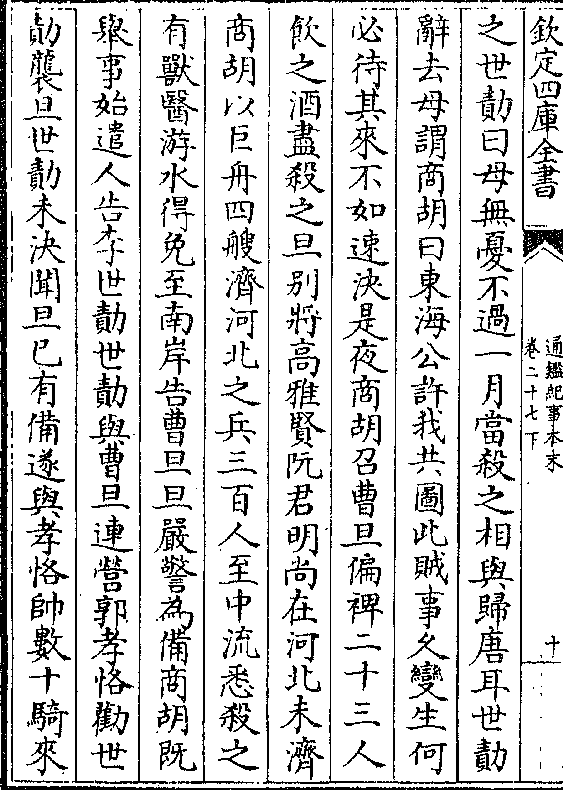 欽定四庫全書
通鑑紀事本末
卷二十七下
十
之世勣曰母無憂不過一月當殺之相與歸唐耳世勣
辭去母謂商胡曰東海公許我共圖此賊事久變生何
必待其來不如速決是夜商胡召曹旦偏裨二十三人
飲之酒盡殺之旦別將高雅賢阮君明尚在河北未濟
商胡以巨舟四艘濟河北之兵三百人至中流悉殺之
有獸醫游水得免至南岸告曹旦旦嚴警為備商胡既
舉事始遣人告李世勣世勣與曹旦連營郭孝恪勸世
勣襲旦世勣未決聞旦已有備遂與孝恪帥數十騎來